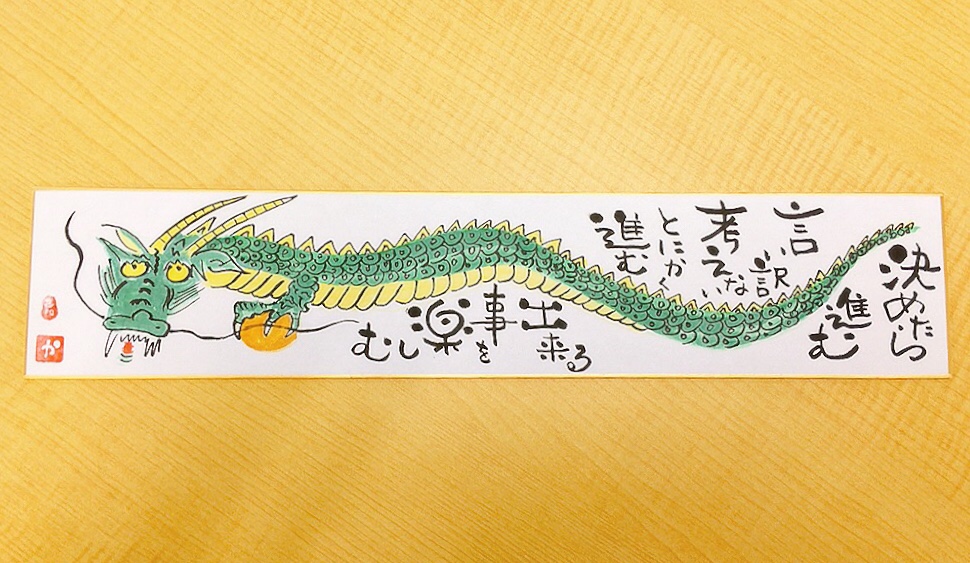 決めたら
進む
言い訳
考えない
とにかく
進む
出来る
事を
楽しむ
か